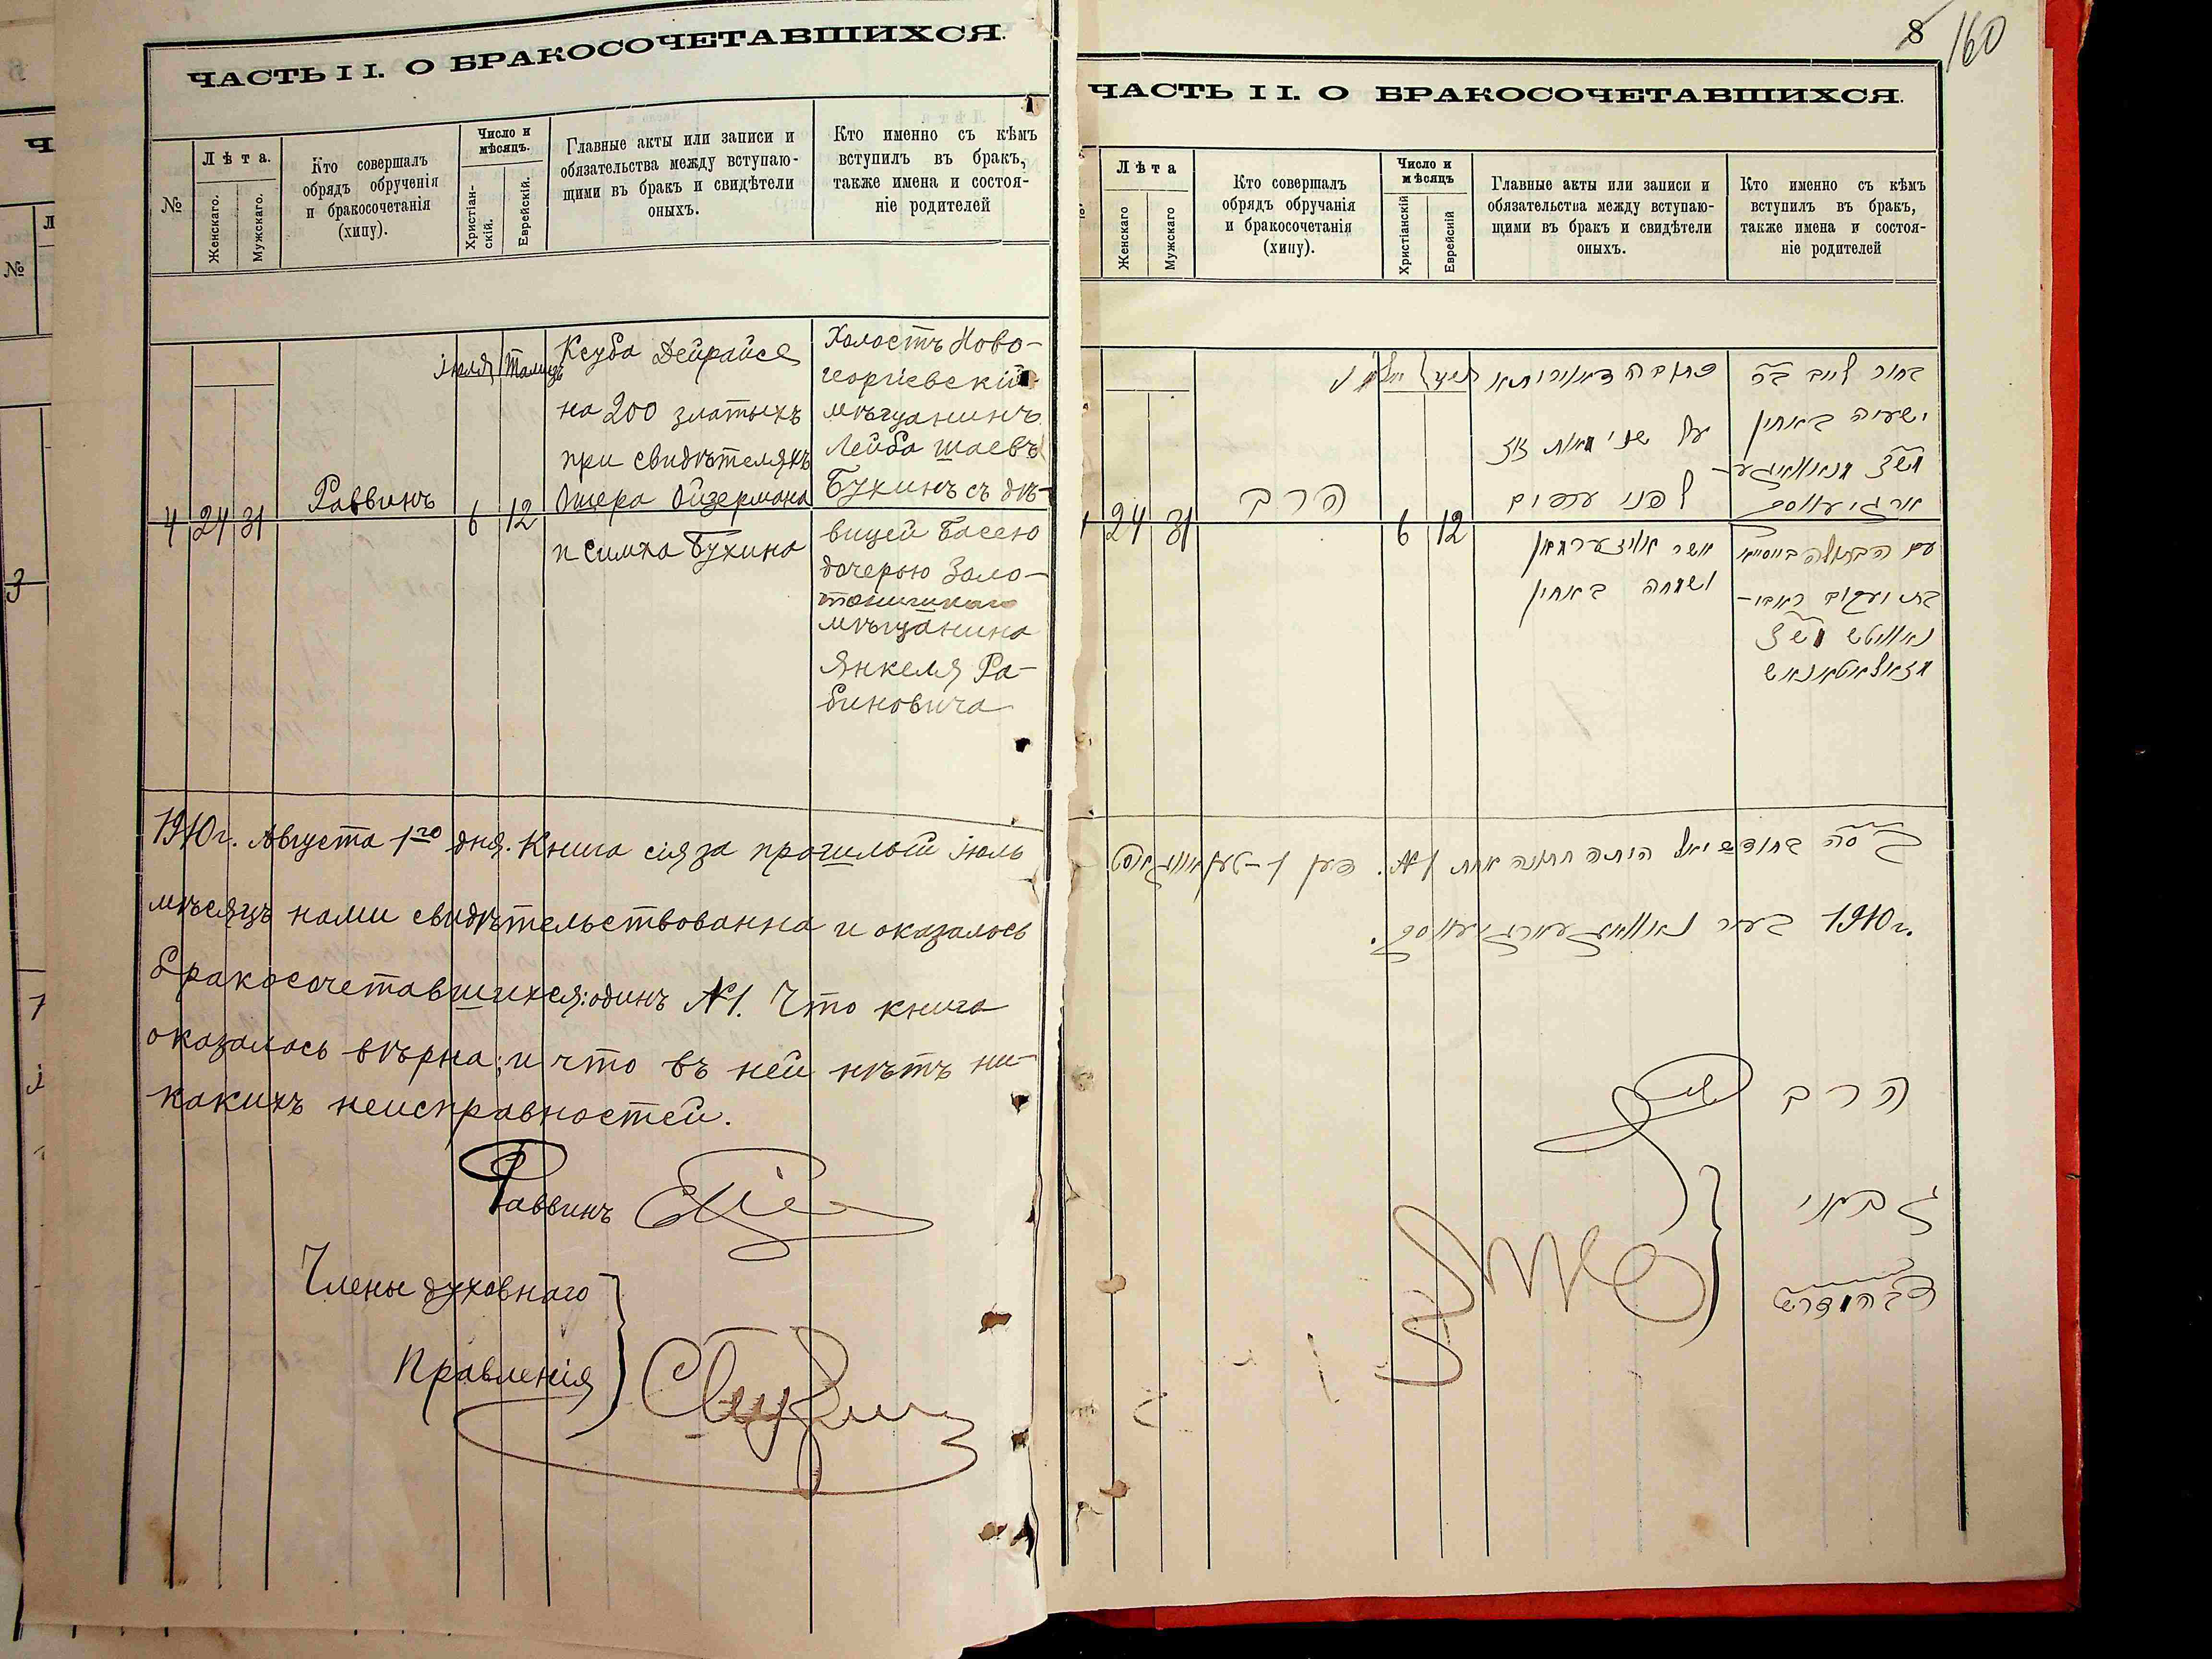 ЧАСТЬ II. О БРАКОСОЧЕТАВШИХСЯ.
№
Лѣта.
Женскаго.
Мужскаго.
Кто совершалъ
обрядъ обрученія
и бракосочетанія
(хипу).
Число и
мѣсяцъ.
Христіан-
скій.
Еврейскій.
Главные акты или записи и
обязательства между вступаю-
щими въ бракъ и свидѣтели
оныхъ.
Кто именно съ кѣмъ
вступилъ въ бракъ,
также имена и состоя-
ніе родителей
4
24
31
Раввинъ
Іюля
6
Тамузъ
12
Ксуба Дейрайсе
на 200 златыхъ
при свидѣтеляхъ
Ошера Ойзермана
и Симха Букина
Холостъ Ново-
георгіевскій
мѣщанинъ
Лейба Шаевъ
Букинъ съ дѣ-
вицей Басею
дочерью Золо-
тоношскаго
мѣщанина
Янкеля Ра-
биновича
1910 г. Августа 1го дня. Книга сія за прошлый Іюль
мѣсяцъ нами свидѣтельствованна и оказалось
бракосочетавшихся: одинъ №1. Что книга
оказалась вѣрна; и что въ ней нѣтъ ни-
какихъ неисправностей.
Раввинъ
Члены духовнаго
Правленія
8
160
ЧАСТЬ II. О БРАКОСОЧЕТАВШИХСЯ.
Лѣта
Женскаго
Мужскаго
Кто совершалъ
обрядъ обручанія
и бракосочетанія
(хипу).
Число и
мѣсяцъ
Христіанскій
Еврейсній
Главные акты или записи и
обязательства между вступаю-
щими въ бракъ и свидѣтели
оныхъ.
Кто именно съ кѣмъ
вступилъ въ бракъ,
также имена и состоя-
ніе родителей
24
31
הרב
6
12
כתובה דאורייתא
על שני מאות זוז
לפני עדים
אשר אויזערמאן
ושמחה באקין
בחור לייב
ישעיה באקין
עם הבתולה
בת יעקב ראבי-
בחודש יאל היתה חתונה אחת №1.
1910 г. בעיר
הרב
גבאי